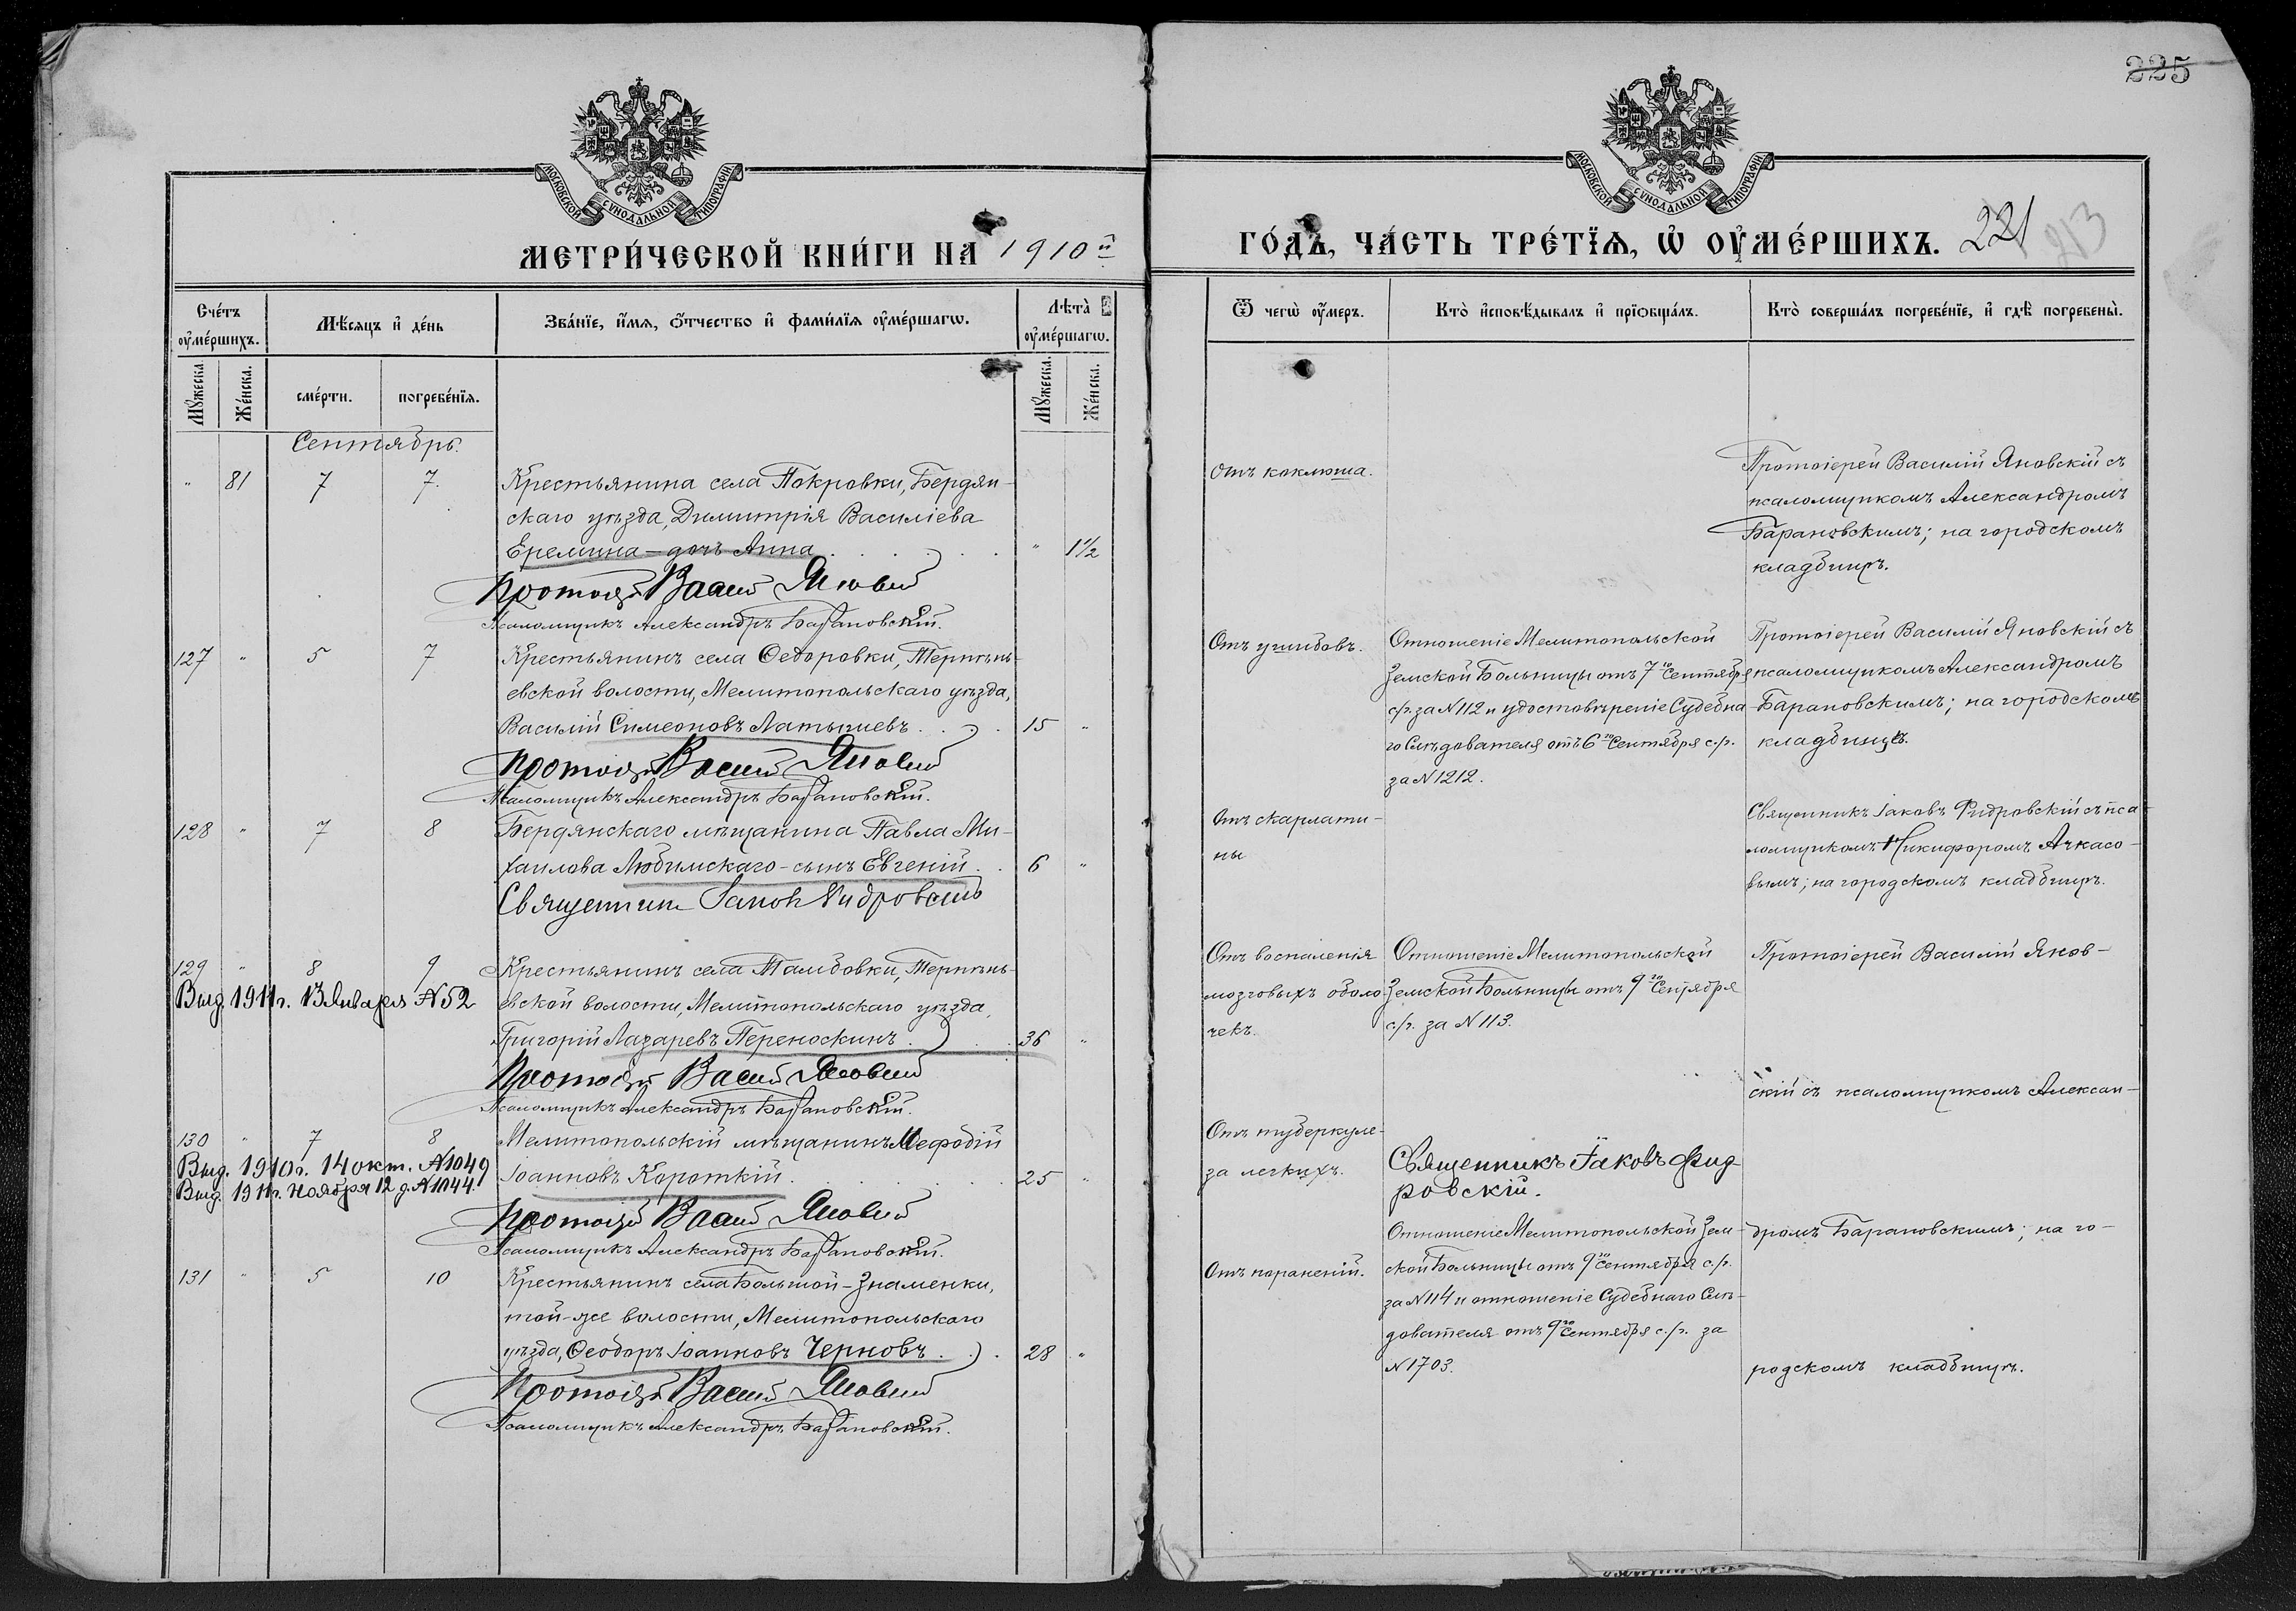 225
МОСКОВСКОЙ СѴНОДАЛЬНОЙ ТИПОГРАФІИ
МОСКОВСКОЙ СѴНОДАЛЬНОЙ ТИПОГРАФІИ
МЕТРИ́ЧЕСКОЙ КНИ́ГИ НА 1910й
ГО́ДЪ, ЧА́СТЬ ТРЕ́ТЇѦ, Ѡ ОУ҆МЕ́РШИХЪ. 221 213
Сче́тъ оу҆ме́ршихъ.
Мѣ́сяцъ и҆ де́нь
Зва́нїе, и҆́мѧ, ѻ҆́тчество и҆ фами́лїѧ оу҆ме́ршагѡ.
Лѣта̀ оу҆ме́ршагѡ.
Ѿ чегѡ̀ оу҆́меръ.
Кто̀ и҆сповѣ́дывалъ и҆ прїѡбща́лъ.
Кто̀ соверша́лъ погребе́нїе, и҆ гдѣ̀ погребены̀.
Мꙋ́жеска. Же́нска. сме́рти. погребе́нїѧ. Мꙋ́жеска. Же́нска.
Сентябрь.
" 81 7 7. Крестьянина села Покровки, Бердян-
скаго уѣзда, Димитрія Василіева
Еремина – дочь Анна . . . . " 1 1/2
Протоіерей Василій Яновскій
Псаломщикъ Александръ Барановскій.
Отъ коклюша.
Протоіерей Василій Яновскій съ
псаломщикомъ Александромъ
Барановскимъ; на городскомъ
кладбищѣ.
127 " 5 7 Крестьянинъ села Ѳедоровки, Терпѣнь-
евской волости, Мелитопольскаго уѣзда,
Василій Симеоновъ Латышевъ . . . 15 "
Протоіерей Василій Яновскій
Псаломщикъ Александръ Барановскій.
Отъ ушибовъ.
Отношеніе Мелитопольской
Земской Больницы отъ 7го Сентября
с/г. за N 112 и удостовѣреніе Судебна
го Слѣдователя отъ 6го Сентября с/г.
за N 1212.
Протоіерей Василій Яновскій съ
псаломщикомъ Александромъ
Барановскимъ; на городскомъ
кладбищѣ.
128 " 7 8 Бердянскаго мѣщанина Павла Ми-
хаилова Любимскаго - сынъ Евгеній . . 6 "
Священникъ Іаковъ Фидровскій
Отъ скарлати-
ны
Священникъ Іаковъ Фидровскій съ пса-
ломщикомъ Никифоромъ Ачкасо-
вымъ; на городскомъ кладбищѣ.
129 " 8 9 Крестьянинъ села Тамбовки, Терпѣнь-
Выд. 1911 г. 13 Января N 52 евской волости, Мелитопольскаго уѣзда,
Григорій Лазаревъ Переноскинъ . . . 36 "
Протоіерей Василій Яновскій
Псаломщикъ Александръ Барановскій.
Отъ воспаленія
мозговыхъ оболо
чекъ.
Отношеніе Мелитопольской
Земской Больницы отъ 9го Сентября
с/г. за N 113.
Протоіерей Василій Янов-
скій съ псаломщикомъ Алексан-
130 " 7 8 Мелитопольскій мѣщанинъ Меѳодій
Выд. 1910 г. 14 окт. N 1049 Іоанновъ Короткій . . . . . 25 "
Выд. 1911 г. Ноября 12 д. N 1044.
Протоіерей Василій Яновскій
Псаломщикъ Александръ Барановскій.
Отъ туберкуле-
за легкихъ.
Священникъ Іаковъ Фид-
ровскій.
дромъ Барановскимъ; на го-
131 " 5 10 Крестьянинъ села Большой-Знаменки,
той-же волости, Мелитопольскаго
уѣзда, Ѳеодоръ Іоанновъ Черновъ . . . 28 "
Протоіерей Василій Яновскій
Псаломщикъ Александръ Барановскій.
Отъ пораненій.
Отношеніе Мелитопольской Зем-
ской Больницы отъ 9го Сентября с/г.
за N 114 и отношеніе Судебнаго Слѣ-
дователя отъ 9го Сентября с/г. за
N 1703.
родскомъ кладбищѣ.